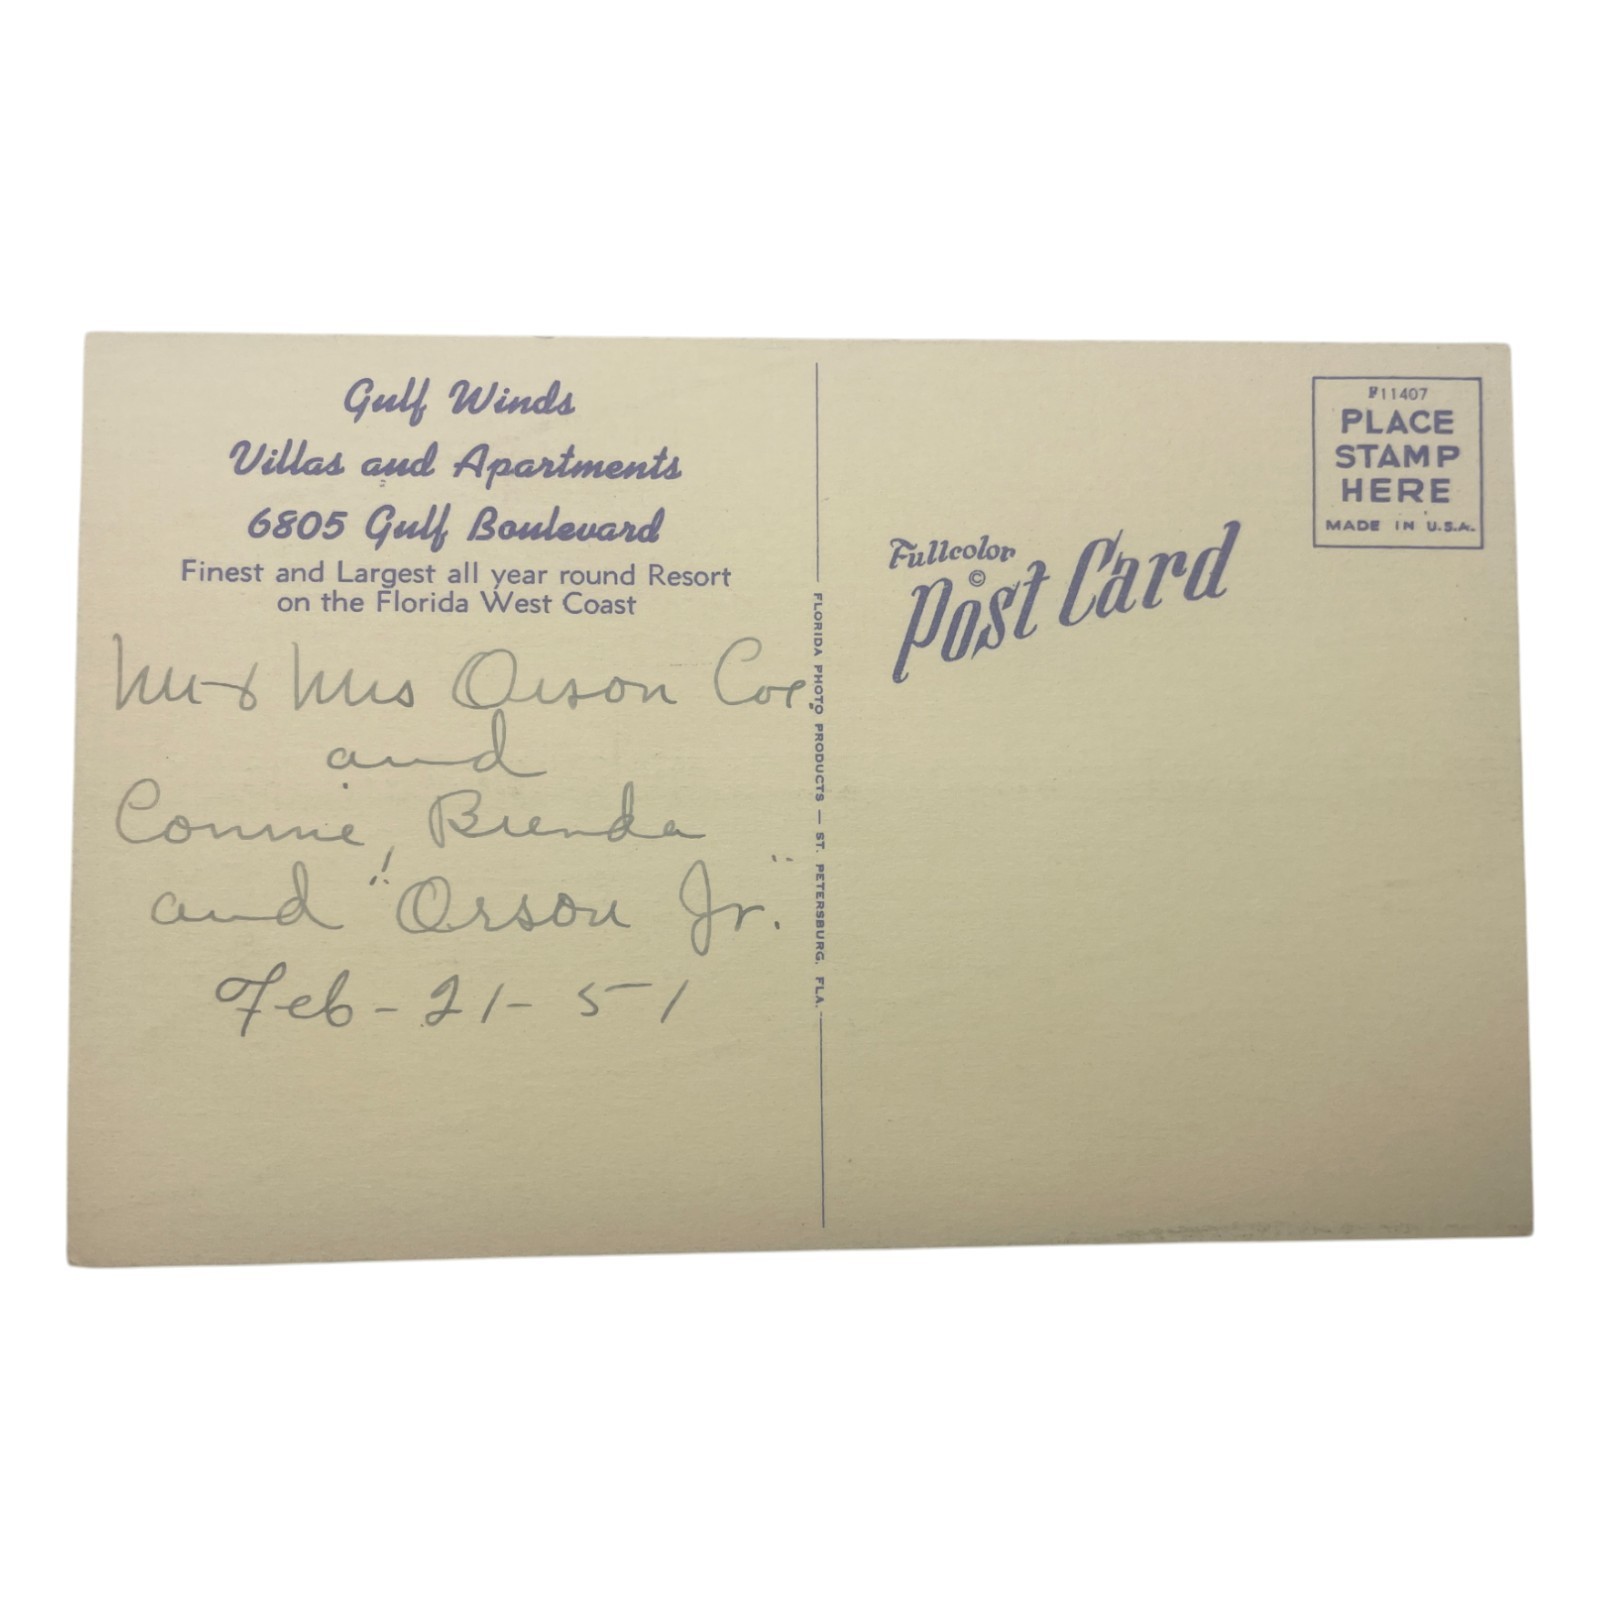 Gulf Winds
Villas and Apartments
6805 Gulf Boulevard
Finest and Largest all year round Resort
on the Florida West Coast
Mr & Mrs Orson Coe.
and
Connie, Brenda
and "Orson Jr."
Feb - 21 - 51
FLORIDA PHOTO PRODUCTS — ST. PETERSBURG, FLA.
Fullcolor
©
Post Card
F11407
PLACE
STAMP
HERE
MADE IN U.S.A.